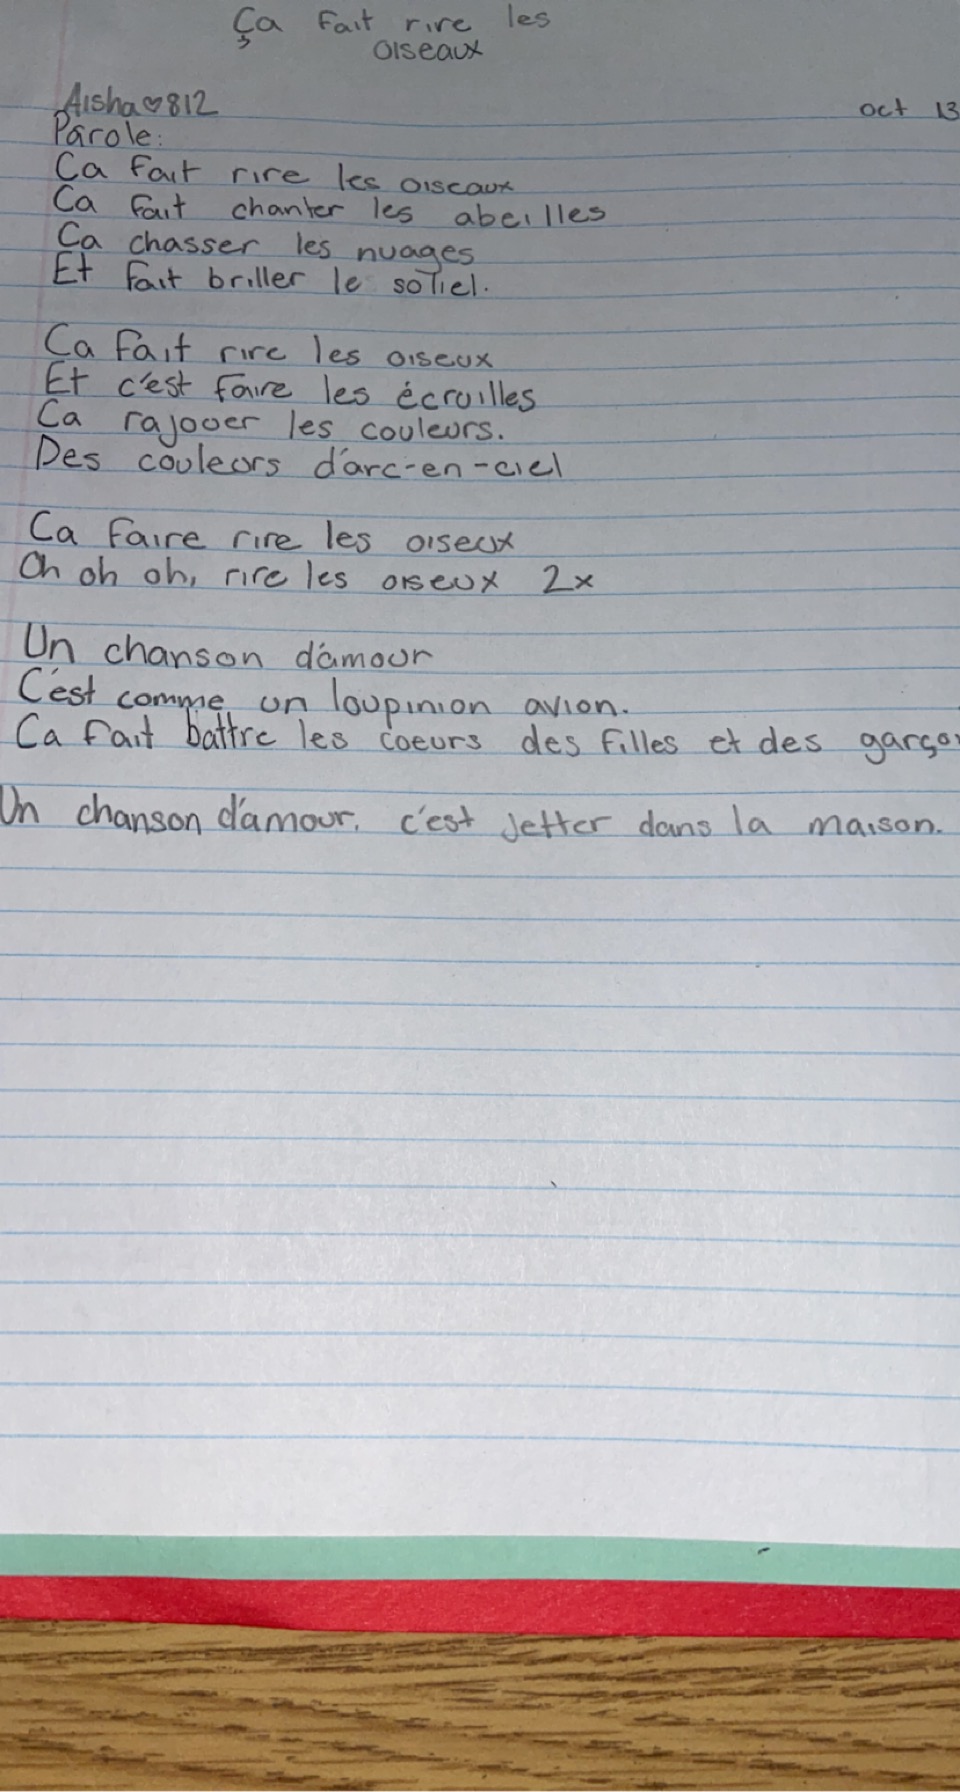 Ça fait rire les
oiseaux
Aisha♡812
oct 13
Parole:
Ca fait rire les oiseaux
Ca fait chanter les abeilles
Ca chasser les nuages
Et fait briller le soliel.
Ca fait rire les oiseux
Et c'est faire les écruilles
Ca rajouer les couleurs.
Des couleurs d'arc-en-ciel
Ca faire rire les oiseux
Oh oh oh, rire les oiseux 2x
Un chanson d'amour
C'est comme un loupinion avion.
Ca fait battre les coeurs des filles et des garço
Un chanson d'amour, c'est jetter dans la maison.